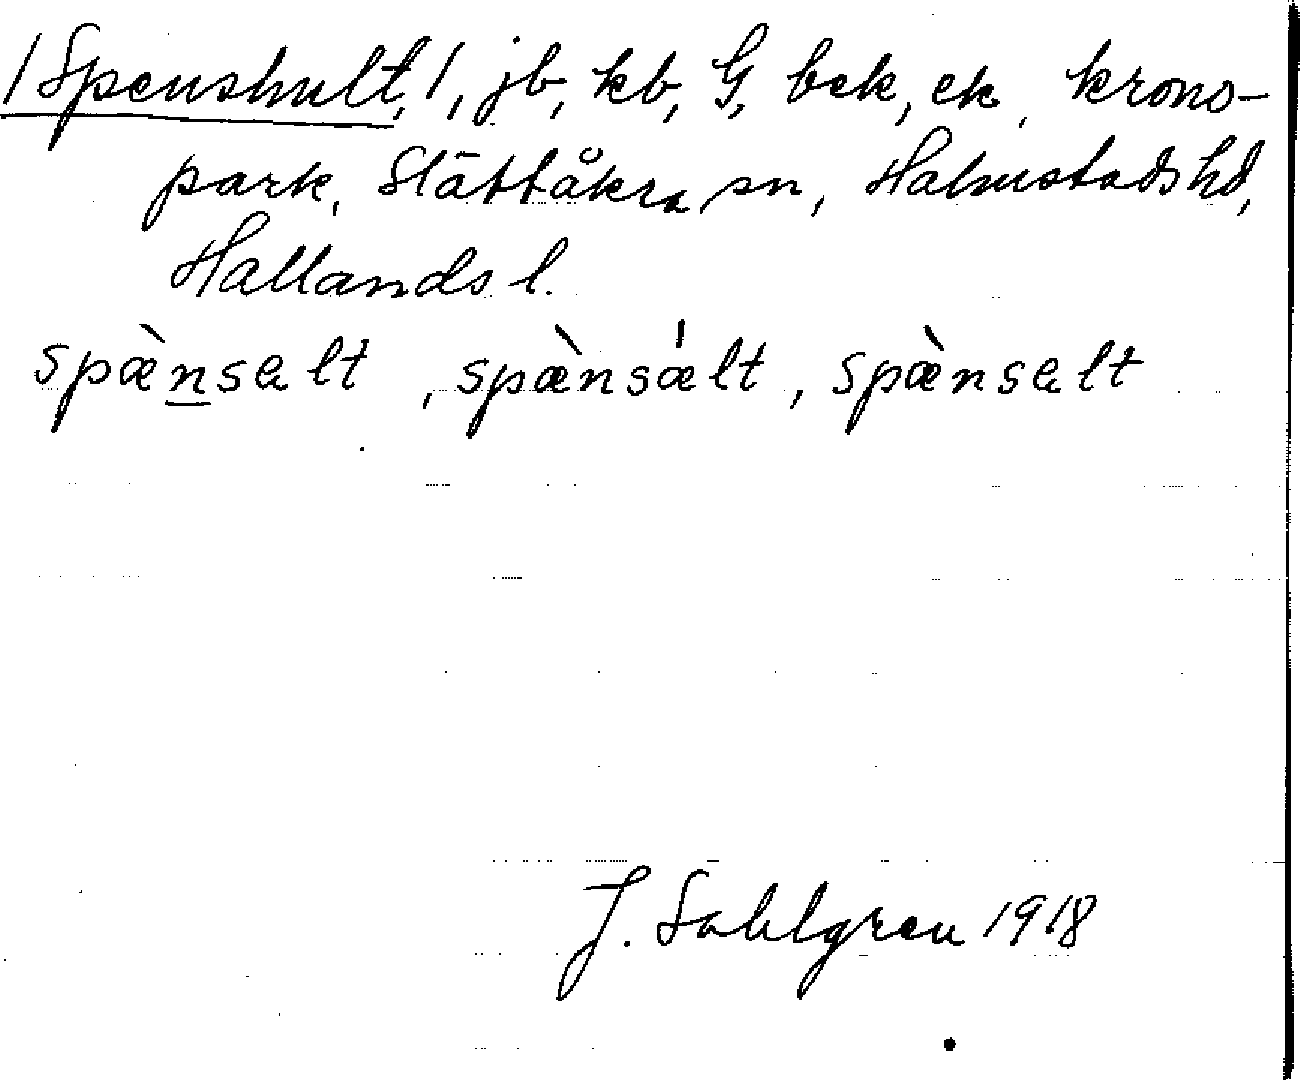 /Spenshult,/, jb, kb, G, bek, ek, krono-
park, Slättåkra sn, Halmstads hd,
Hallands l.
spæ̀nsalt, spæ̀nsǽlt, spæ̀nsalt
J. Sahlgren 1918